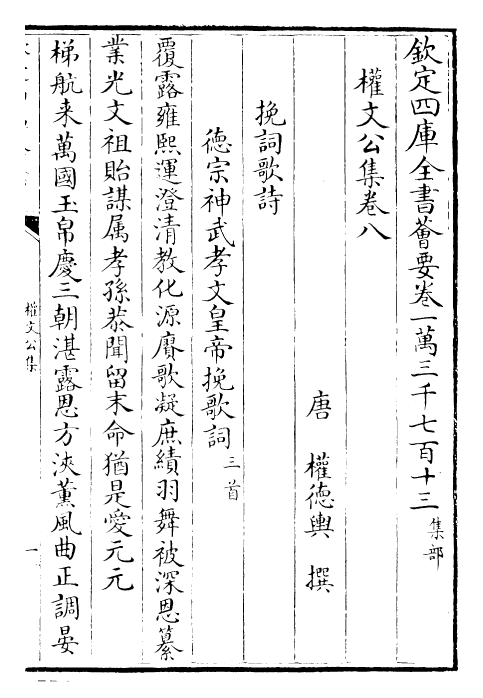 欽定四庫全書薈要卷一萬三千七百十三集部
權文公集卷八
唐 權德輿 撰
挽詞歌詩
德宗神武孝文皇帝挽歌詞三首
覆露雍熙運澄清教化源賡歌凝庶績羽舞被深恩纂
業光文祖貽謀属孝孫恭聞留末命猶是愛元元
梯航来萬國玉帛慶三朝湛露恩方浹薰風曲正調晏
權文公集
一